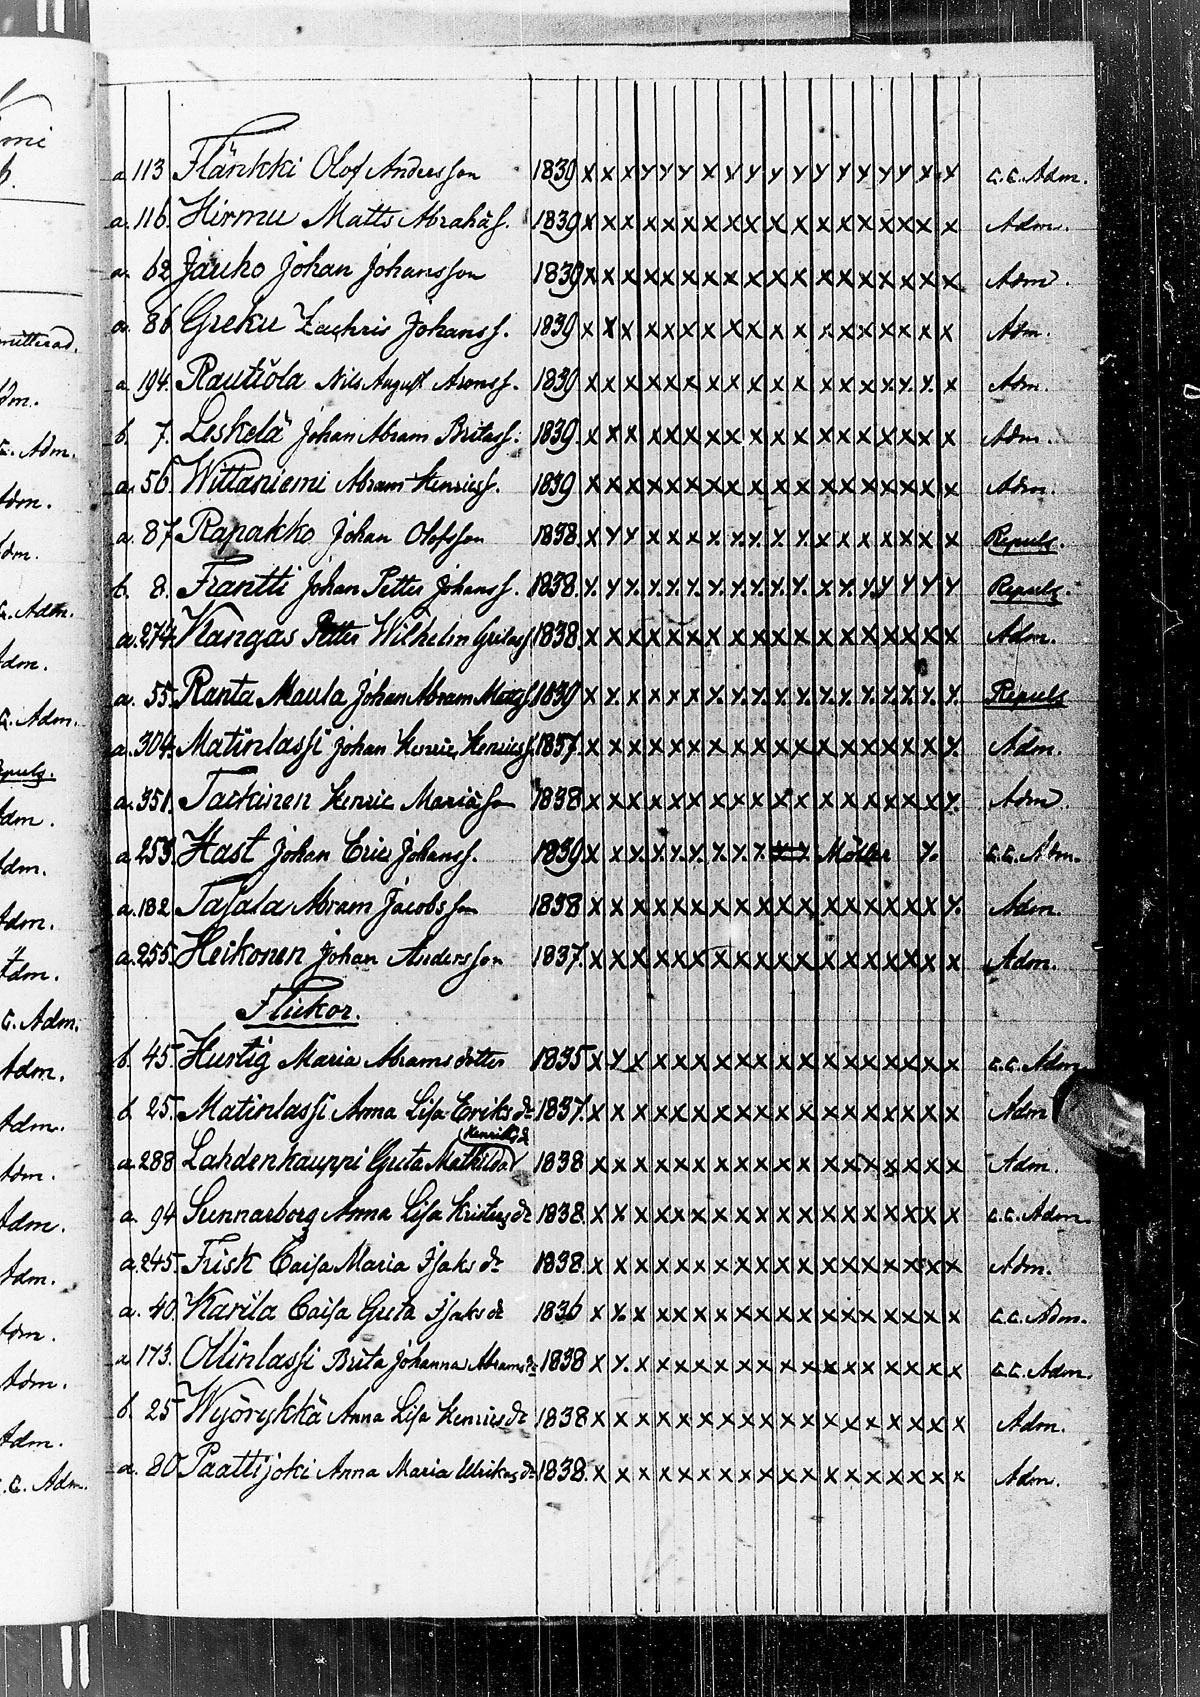 a. 113 Flänkki Olof Andersson 1839 x x x y y y x y y y y y y y y y x x c.c. Adm.
a. 116. Hirmu Matts Abrahãs. 1839 x x x x x x x x x x x x x x x x x x Adm.
a. 62 Jauho Johan Johansson 1839 x x x x x x x x x x x x x x x x x x Adm.
a. 86 Greku Zachris Johanss. 1839 x x x x x x x x x x x x x x x x x x Adm.
a. 194. Rautiola Nils August Aronss. 1839 x x x x x x x x x x x x x x x x x x Adm.
b. 7. Leskelä Johan Abram Britass. 1839. x x x x x x x x x x x x x x x x x x Adm.
a. 56. Wittaniemi Abram Henricss. 1839 x x x x x x x x x x x x x x x x x x Adm.
a. 87. Rapakko Johan Olofsson 1838. x y y x x x x y y y y x x x x x x x Repuls.
b. 8. Frantti Johan Petter Johanss. 1838. y y y y y y y y y y y x y y y y y y Repuls.
a. 274. Kangas Petter Wilhelm Gretass. 1838. x x x x x x x x x x x x x x x x x x Adm.
a. 55. Ranta Maula Johan Abram Matss. 1839 x y x x x x y y y y y y y y y x y y Repuls
a. 304. Matinlassi Johan Henric Henricss. 1837. x x x x x x x x x x x x x x x x x y Adm.
a. 351. Tackinen Henric Mariæson 1838 x x x x x x x x x x x x x x x x x y Adm.
a. 253. Hast Johan Eric Johanss. 1839 x x y y y y y y y Möller y. c.c. Adm.
a. 182. Tasala Abram Jacobsson 1838 x x x x x x x x x x x x x x x x x y Adm.
a. 255. Heikonen Johan Andersson 1837. x x x x x x x x x x x x x x x x x x Adm.
Flickor.
b. 45. Hurtig Maria Abramsdotter 1835 x y x x x x x x x x x x x x x x x x c.c. Adm.
b. 25. Matinlassi Anna Lisa Eriks dr 1837. x x x x x x x x x x x x x x x x x x Adm
Henriks d
a. 288 Lahdenkauppi Greta Mathilda 1838 x x x x x x x x x x x x x x x x x x Adm.
a. 94 Sunnarborg Anna Lisa dr 1838 x x x x x x x x x x x x x x x x x x c.c. Adm.
a. 245. Frisk Caisa Maria Isaks dr 1838. x x x x x x x x x x x x x x x x x x Adm.
a. 40. Karila Caisa Greta Isaks dr 1836 x y x x x x x x x x x x x x x x x x c.c. Adm.
a. 173. Ollinlassi Brita Johanna Abrams dr 1838 x y x x x x x x x x x x x x x x x x c.c. Adm.
b. 25 Wyörykkä Anna Lisa Henrics dr 1838 x x x x x x x x x x x x x x x x x x Adm.
a. 80 Paattijoki Anna Maria Ulrikas dr 1838. x x x x x x x x x x x x x x x x x x Adm.